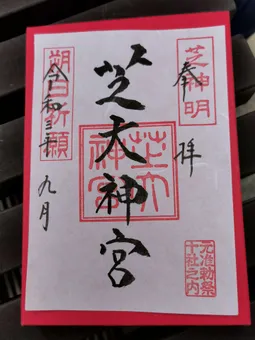 芝神明
奉拝
芝大神宮
芝大神宮
元准勅祭
十社之内
朔日祈願
令和三年
九月